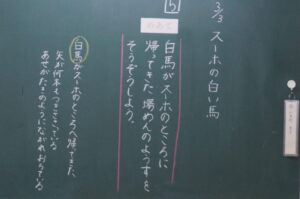 3/3 スーホの白い馬
5
めあて
白馬がスーホのところに
帰ってきた場めんのようすを
そうぞうしよう。
白馬がスーホのところへ帰ってきた。
矢が何本もつきささっている
あせがたきのようにながれおちている